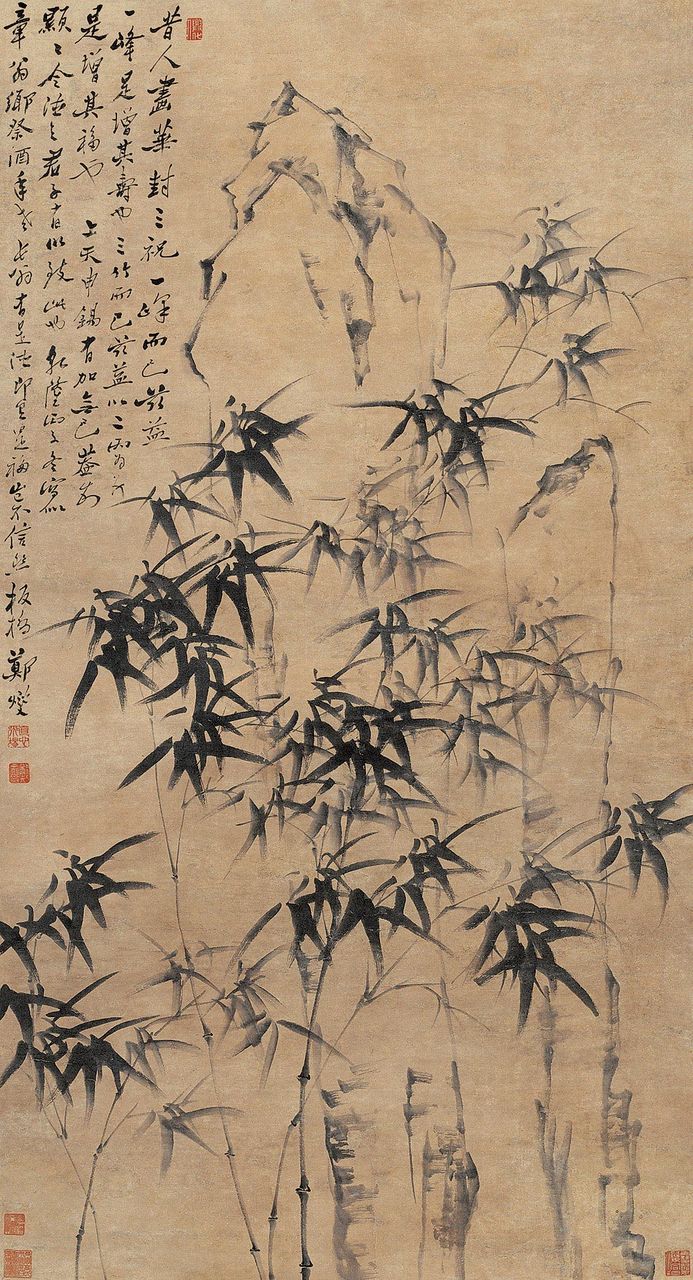 昔人畫華封三祝一峰而已茲益
一峰是增其壽也三竹而已茲益以二兩
是增其福也上天申錫者加無已蓋
顯顯令德之君子有以致此也乾隆丙子冬寫似
章翁鄉祭酒年老長有是德即有是福豈不信然板橋鄭燮